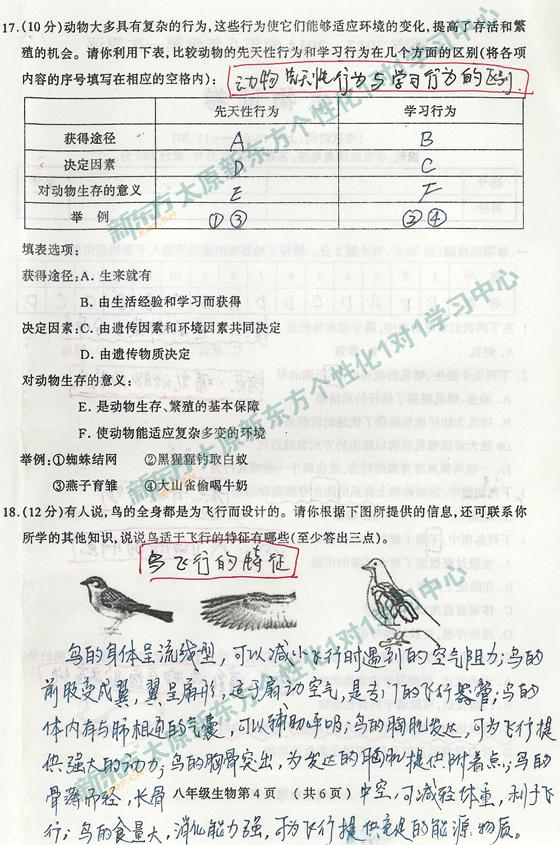 17.(10分)动物大多具有复杂的行为,这些行为使它们能够适应环境的变化,提高了存活和繁
殖的机会。请你利用下表,比较动物的先天性行为和学习行为在几个方面的区别(将各项
内容的序号填写在相应的空格内):
动物先天性行为与学习行为的区别.
先天性行为 学习行为
获得途径 A B
决定因素 D C
对动物生存的意义 E F
举 例 ①③ ②④
填表选项:
获得途径:A. 生来就有
B. 由生活经验和学习而获得
决定因素:C. 由遗传因素和环境因素共同决定
D. 由遗传物质决定
对动物生存的意义:
E. 是动物生存、繁殖的基本保障
F. 使动物能适应复杂多变的环境
举例:①蜘蛛结网 ②黑猩猩钓取白蚁
③燕子育雏 ④大山雀偷喝牛奶
18.(12分)有人说,鸟的全身都是为飞行而设计的。请你根据下图所提供的信息,还可联系你
所学的其他知识,说说鸟适于飞行的特征有哪些(至少答出三点)。
鸟飞行的特征
鸟的身体呈流线型,可以减小飞行时遇到的空气阻力;鸟的
前肢变成翼,翼呈扇形,适于扇动空气,是专门的飞行器官;鸟的
体内有与肺相通的气囊,可以辅助呼吸;鸟的胸肌发达,可为飞行提
供强大的动力;鸟的胸骨突出,为发达的胸肌提供附着点;鸟的
骨薄而轻,长骨 中空,可减轻体重,利于飞
八年级生物第4页 (共6页)
行;鸟的食量大,消化能力强,可为飞行提供充足的能源物质。
新东方太原新东方个性化1对1学习中心
新东方太原新东方个性化1对1学习中心